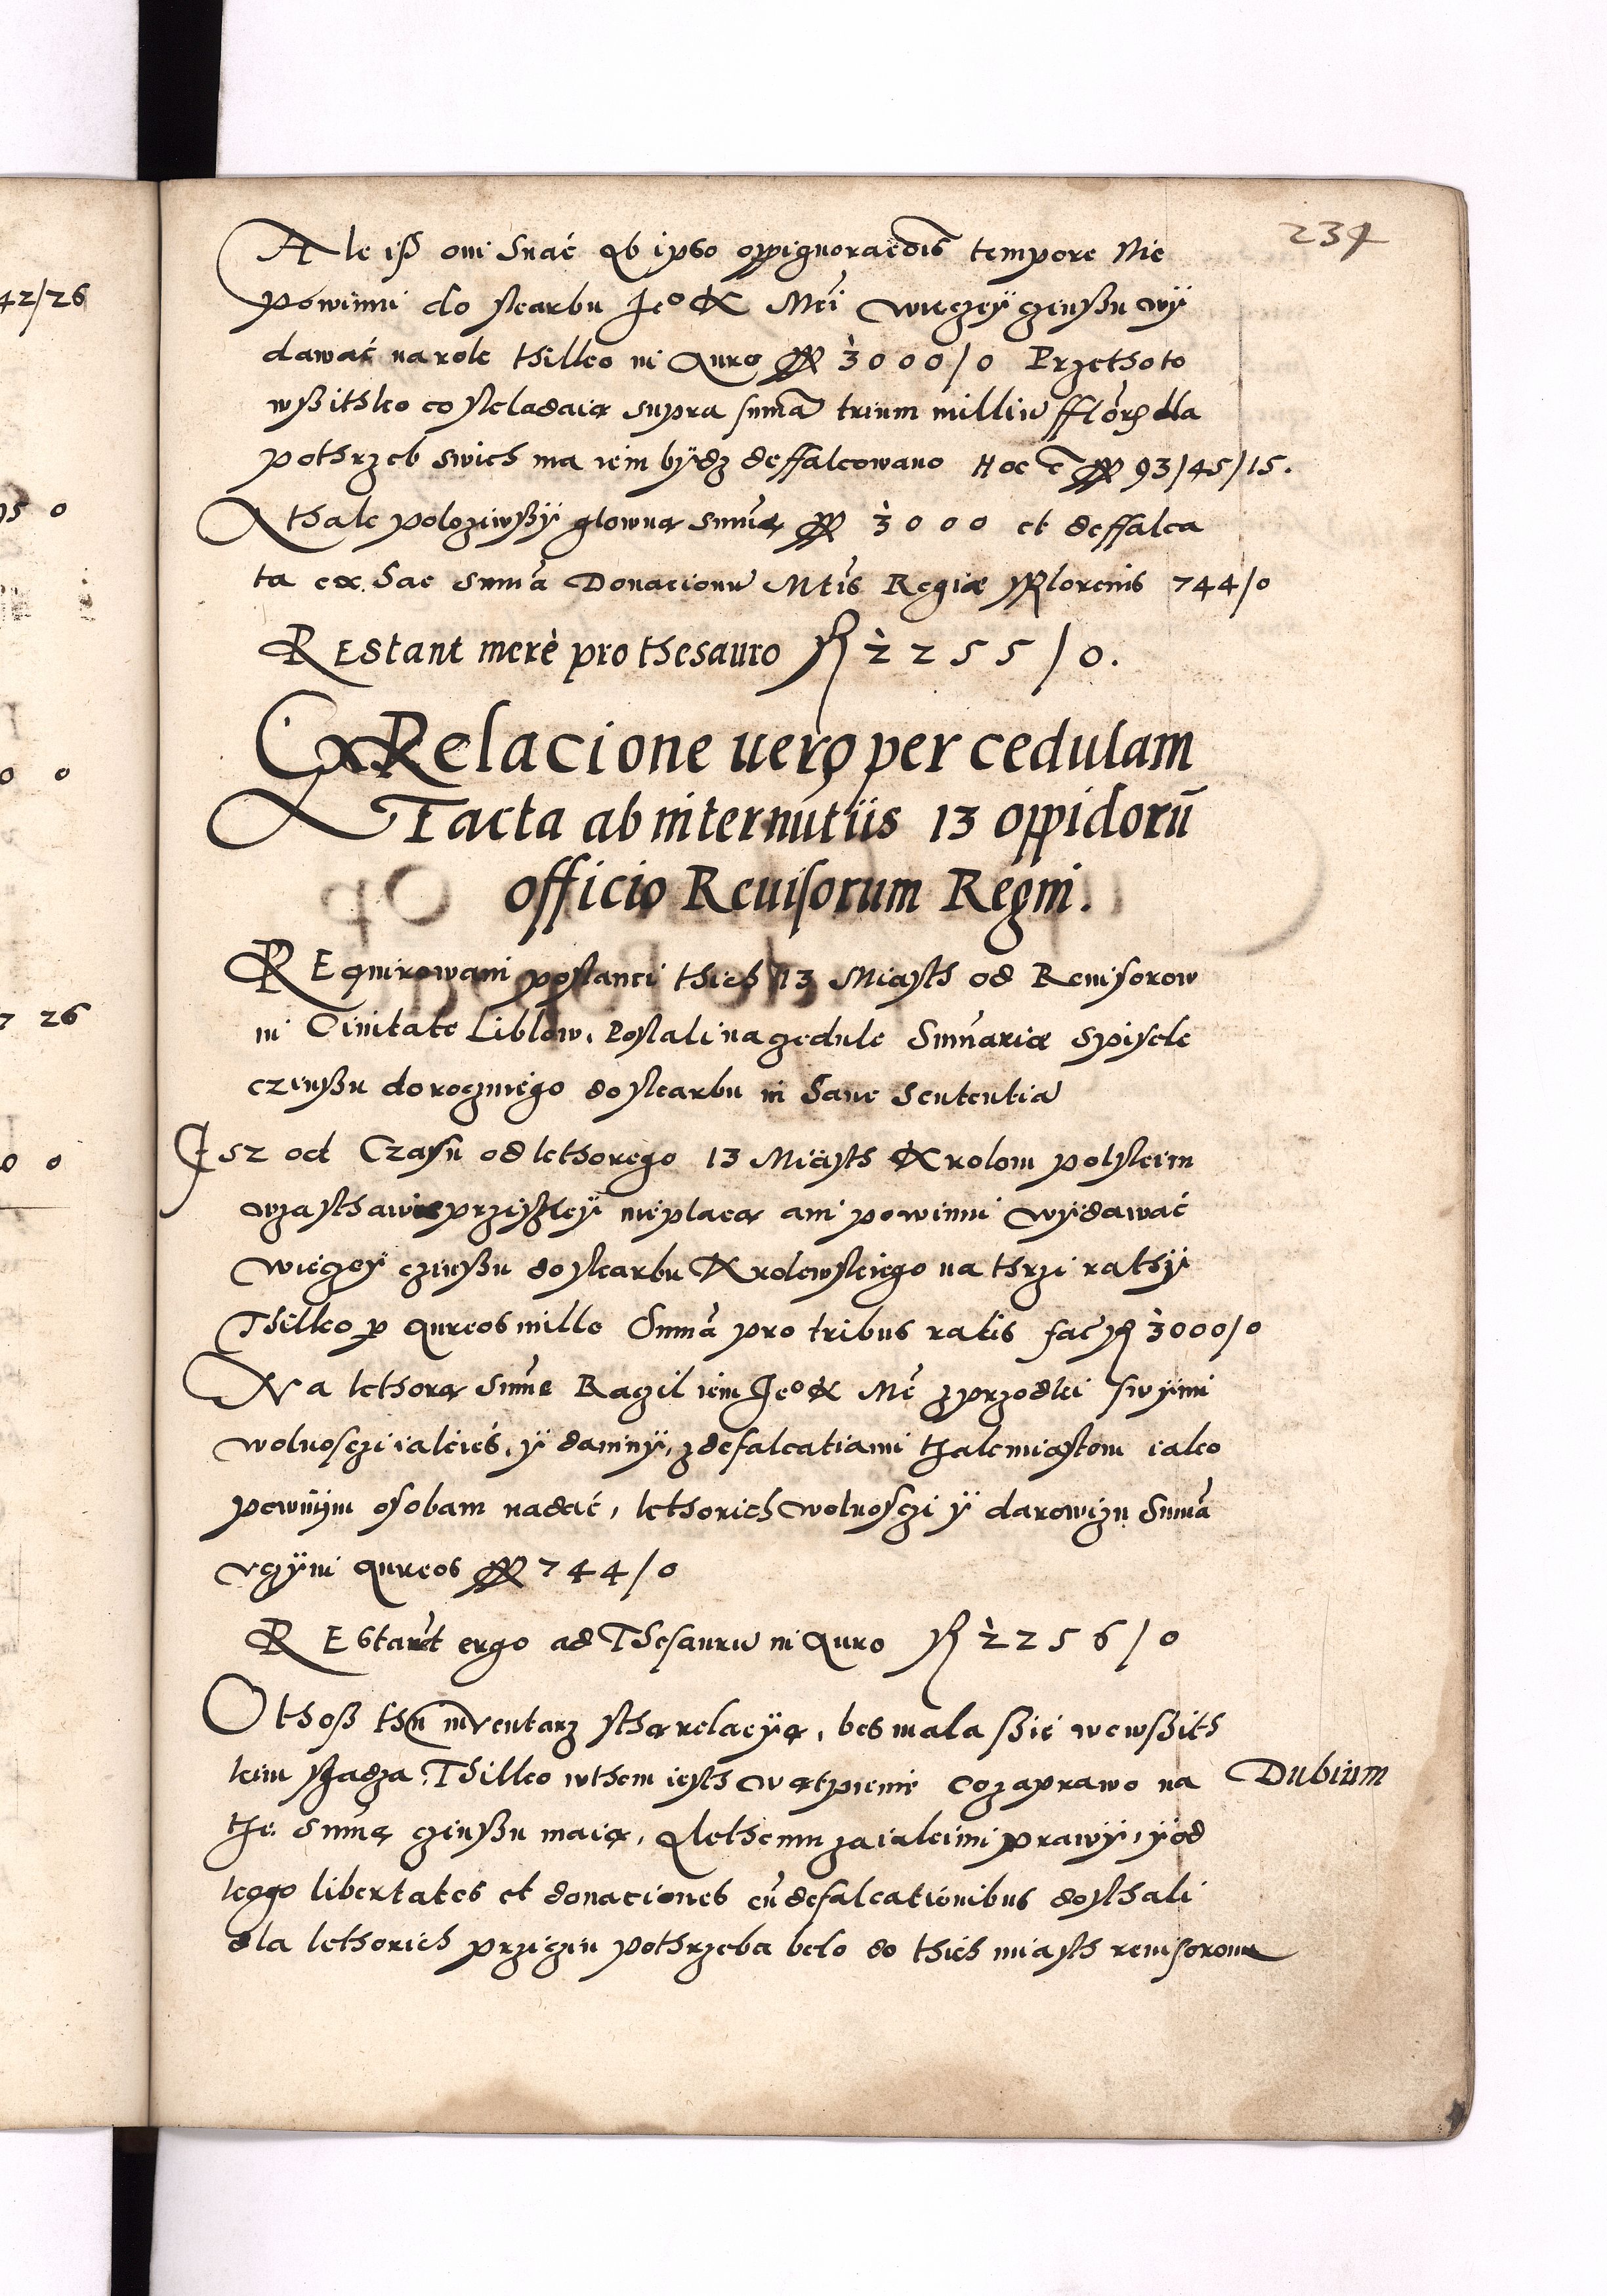 234
Ale iß oni snać ab ipso oppignoraciõis tempore Nie
powinni do skarbu Je° K Mci wieczeÿ czinßu wÿ
dawać na rok thilko in Auro ff 3000/0 Przetho to
wßithko co skladaią supra sum̃a trium milliũ fflor̃ dla
pothrzeb swich ma iem bÿdz deffalcowano Hoc ẽ ff 93/45/15.
A thak polozÿwßÿ glowną sum̃ą ff 3000 et deffalca
ta ex hac sum̃a Donacionũ Mtis Regiæ fflorenis 744/0
REstant merè pro thesauro ff 2255/0.
Ex Relacione uero per cedulam
Facta ab internutiis 13 oppidorũ
officio Reuisorum Regni.
REquirowani poslanci thich 13 Miasth od Reuisorow
in Ciuitate Liblow, Poslali na zedule Sum̃ariæ spisek
czinßu dorocznego do skarbu in hanc sententiã
Isz od Czasu od kthorego 13 Miasth Krolom polskim
w zasthawie przisthleÿ nieplacą ani powinni wÿdawać
wieczeÿ czinßu do skarbu Krolewskiego na thrzi rathÿ
Thilko p Aureos mille Sum̃a pro tribus ratis fac ff 3000/0
Na kthorą sum̃e Raczil iem Je° K Mć z przodki swÿmi
wolnosczi iakieś, ÿ daninÿ, z defalcatiami thak miastom iako
pewnÿm osobam nadać, kthorich wolnosczi ÿ darowizn Sum̃a
vczÿni Aureos ff 744/0
REstant ergo ad Thesaurũ in Auro ff 2256/0
Othoß thẽ inventarz ÿ sthą relacÿą, bes mala ßie wewßith
kim sgadza, Thilko w them iesth wątpienie co za prawo na Dubium
the sum̃ą czinßu maią, A kthemu za iakimi prawÿ, ÿ od
kogo libertates et donaciones cũ defalcationibus dosthali
dla kthorich prziczin pothrzeba belo do thich miasth reuisorom
42/26
15 0
0 0
7 26
0 0